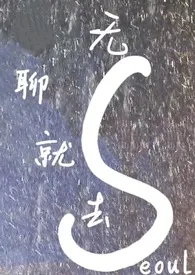 无
聊
就
去
Seoul